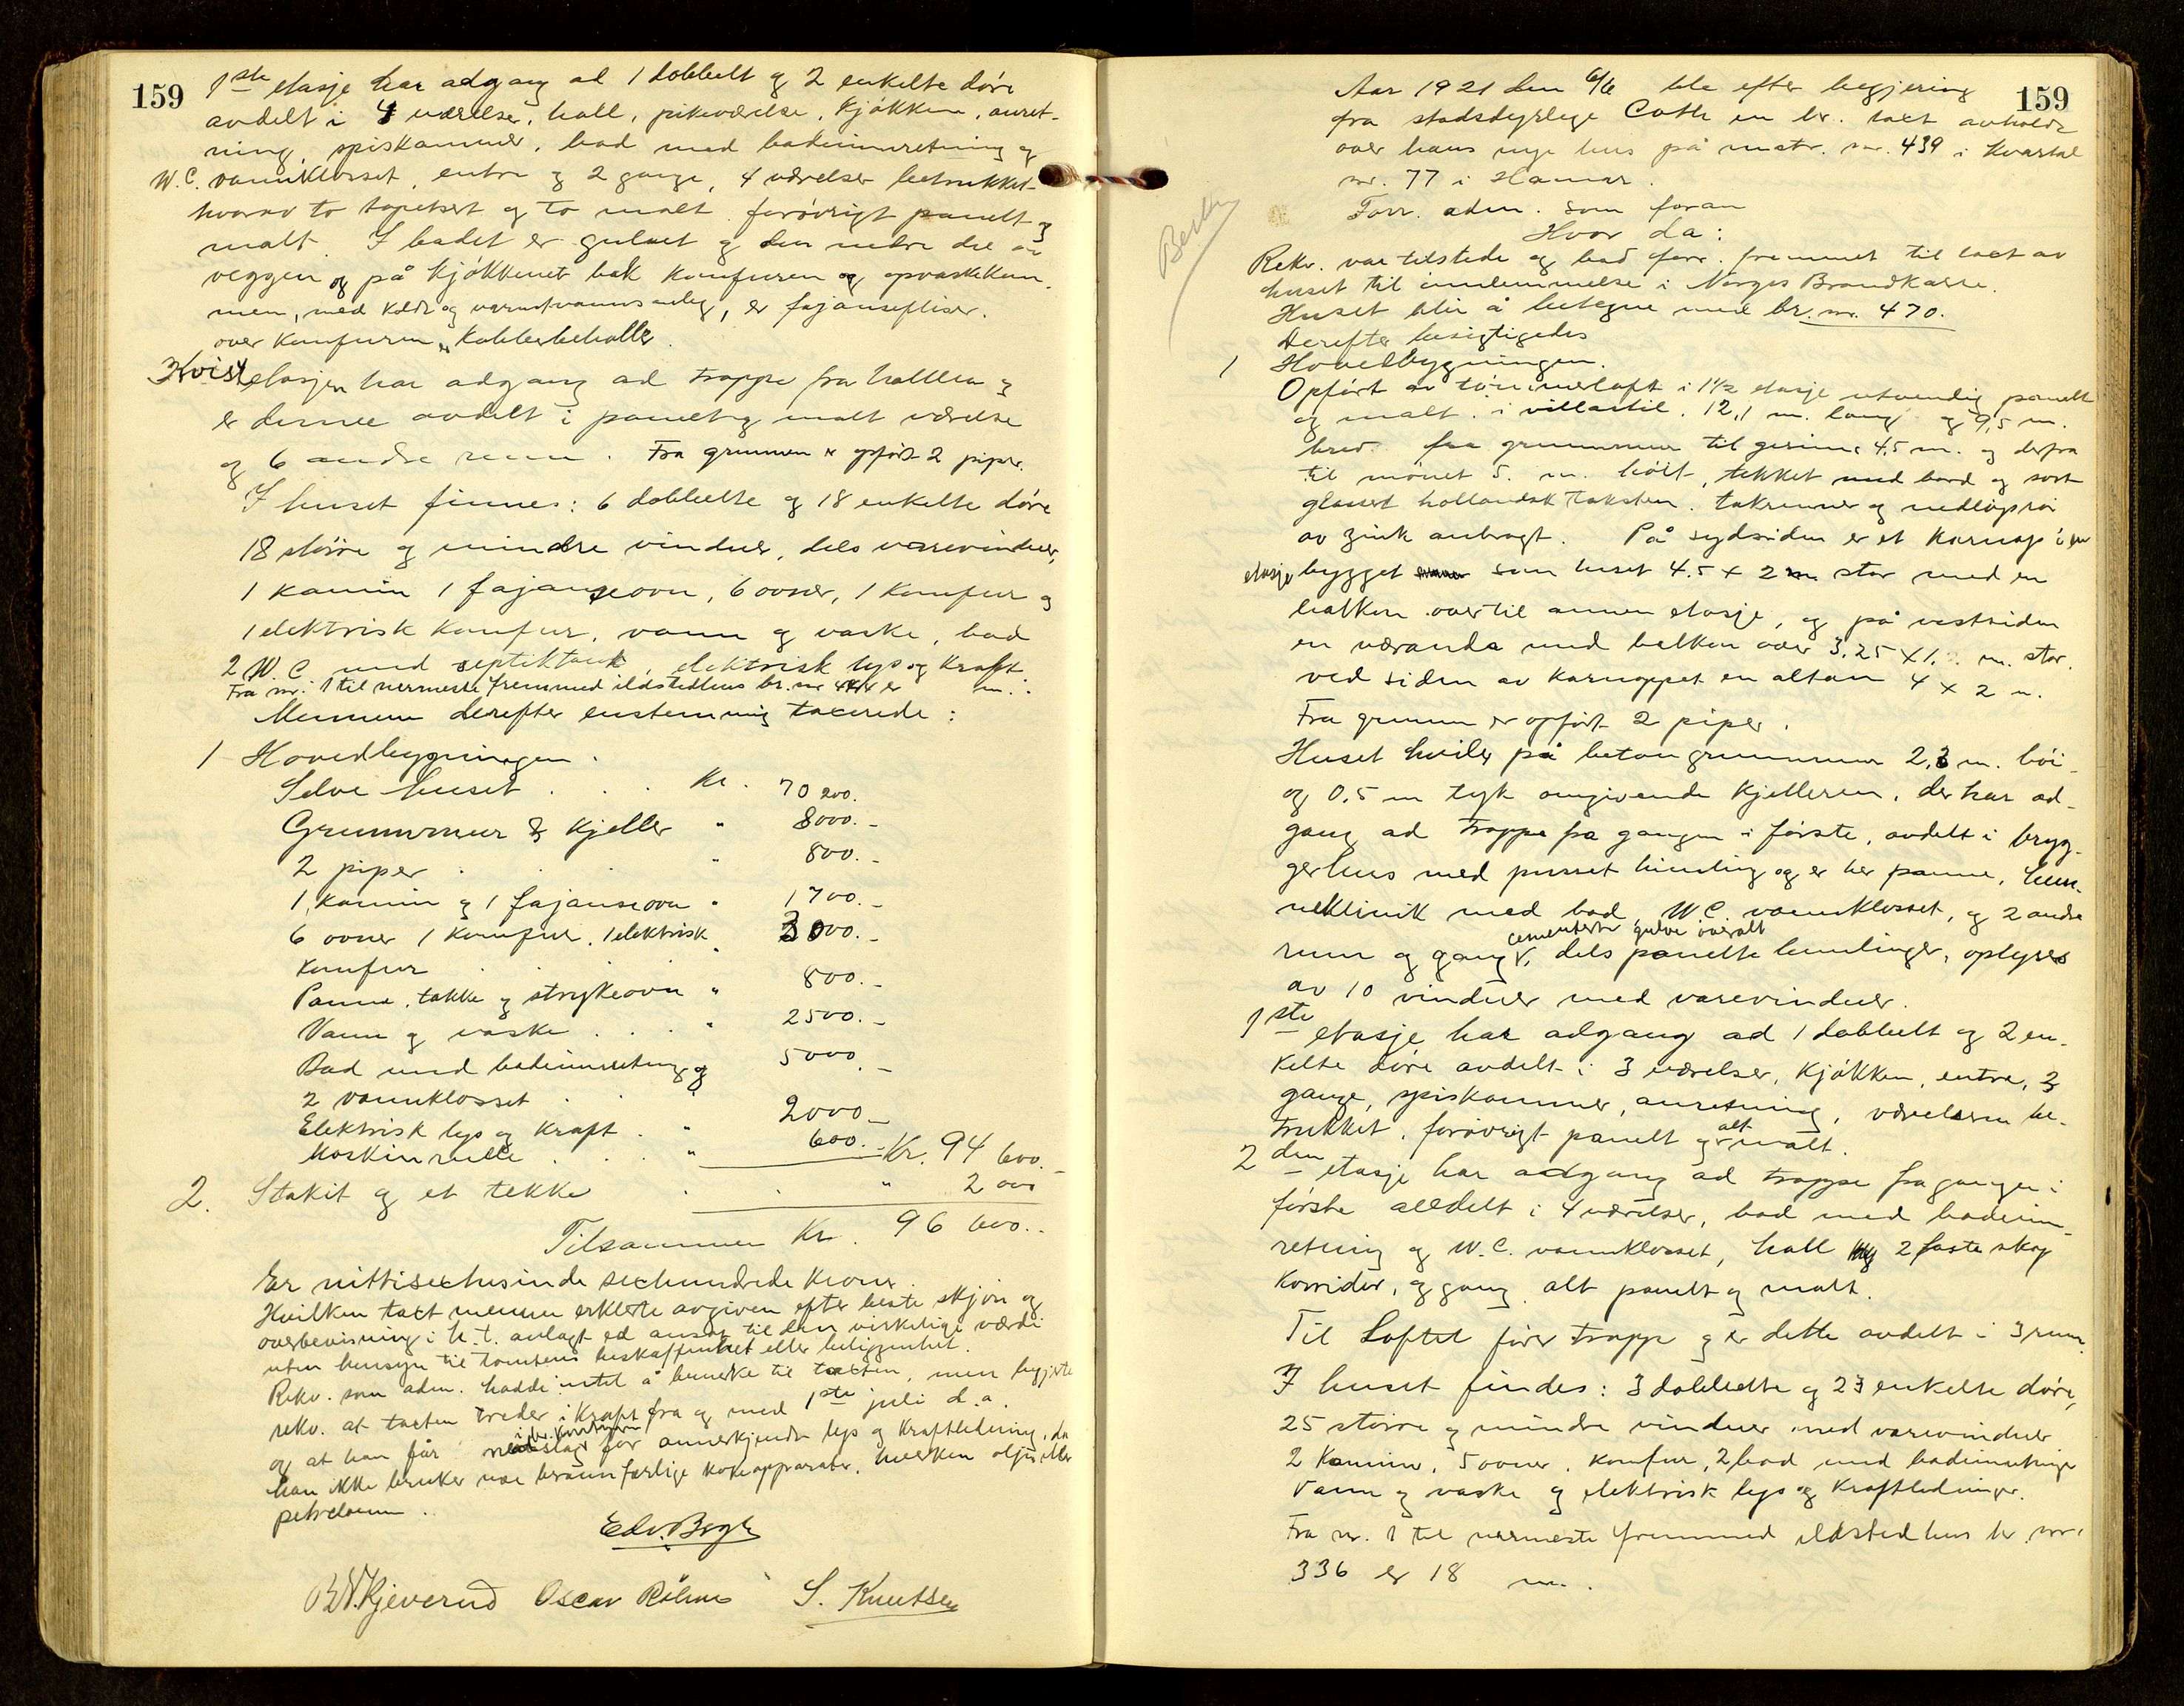 159
1ste etasje har adgang ad 1 dobbelt og 2 enkelte døre
avdelt i 4 værelser, hall, pikeværelse, kjøkken, anret-
ning, spiskammer, bad med badeinnretning og
W.C. vannklosset, entre og 2 gange, 4 værelser betrukket
hvorav to tapetsert og to malt, forøvrigt panelt og
malt. I badet er gulvet og den nedre del av
veggen og på kjøkkenet bak komfuren og opvaskkum-
men, med koldt og varmtvannsanlæg, er fajansefliser.
over komfuren er kobberbeholder.
Kvistetasjen har adgang ad trappe fra hallen og
er denne avdelt i panelt og malt værelse
og 6 andre rum. Fra grunnen er opført 2 piper.
I huset finnes: 6 dobbelte og 18 enkelte døre
18 større og mindre vinduer, dels varevinduer,
1 kamin 1 fajanseovn, 6 ovner, 1 komfur og
1 elektrisk komfur, vann og vaske, bad
2 W.C. med septiktank, elektrisk lys og kraft.
Fra nr. 1 til nærmeste fremmed ildstedhus br. nr er m.
Mennene derefter enstemmig taxerede:
1 Hovedbygningen.
Selve huset . . . Kr. 70 200.
Grunnmur & kjeller " 8000.-
2 piper . . . " 800.-
1 kamin og 1 fajanseovn " 1700.-
6 ovner 1 komfur. 1 elektrisk 3000.-
komfur . . . "
Panne, takke og strykeovn " 800.-
Vann og vaske . . . " 2500.-
Bad med badeinnretning og 5000.-
2 vannklosset . . "
Elektrisk lys og kraft . " 2000.-
Maskinrulle . . . " 600.- Kr. 94 600.-
2. Stakit og et tekke . . " 2 000
Tilsammen Kr. 96 600.-
Er nittisextusinde sexhundrede kroner.
Hvilken taxt mennene erklerte avgiven efter beste skjøn og
overbevisning i h. t. avlagt ed ansat til den virkelige værdi
uten hensyn til tomtens beskaffenhet eller beliggenhet.
Rekv. som adm. hadde intet å bemerke til taxten, men begjerte
rekv. at taxten treder i kraft fra og med 1ste juli d.a.
og at han får avslag for annerkjendt lys og kraftledning, da
han ikke bruker noe brannfarlige kokeapparater, hverken olje eller
petroleum.
Edv. Bogh
Kjeverud Oscar S. Knutsen
159
Aar 1921 den 6/6 ble efter begjering
fra stadsdyrlege Coth en br. taxt avholdt
over hans nye hus på matr. nr. 439 i kvartal
nr. 77 i Hamar.
Forr. adm. som foran
Hvor da:
Rekv. var tilstede og bad forr. fremmet til taxt av
huset til innlemmelse i Norges Brandkasse.
Huset blir å betegne med br. nr. 470.
Derefter besigtigedes
1 Hovedbygningen.
Opført av tømmerloft i 1½ etasje utvendig panelt
og malt. i villastil. 12,1 m. lang og 9,5 m.
bred. fra grunnmur til gesims 4,5 m. og derfra
til mønet 5. m. høit, tekket med bord og sort
glasert hollandsk taksten. takrenner og nedløpsrør
av zink anbragt. På sydsiden er et karnap i en
etasje bygget som huset 4.5 x 2 m stor med en
balkon over til annen etasje, og på vestsiden
en væranda med balkon over 3.25 x 1. m. stor.
ved siden av karnappet en altan 4 x 2 m.
Fra grunnen er opført 2 piper.
Huset hviler på betongrunnmur 2,3 m. høi
og 0.5 m tyk omgivende kjelleren, der har ad-
gang ad trappe fra gangen i første, avdelt i bryg-
gerhus med pusset himling og er her panne, hun-
neklinik med bad, W.C. vannklosset, og 2 andre
rum og gang, cementerte gulve overalt dels panelte himlinger, oplyses
av 10 vinduer med varevinduer.
1ste etasje har adgang ad 1 dobbelt og 2 en-
kelte døre avdelt i 3 værelser, kjøkken, entre, 3
gange, spiskammer, anretning, værelserne be-
trukket, forøvrigt panelt og alt malt.
2den etasje har adgang ad trappe fra gangen i
første avdelt i 4 værelser, bad med badeinn-
retning og W.C. vannklosset, hall 2 faste skap
korridor, og gang alt panelt og malt.
Til Loftet fører trappe og er dette avdelt i 3 rum.
I huset findes: 3 dobbelte og 23 enkelte døre,
25 større og mindre vinduer med varevinduer
2 kaminer, 5 ovner, komfur, 2 bad med badeinnretninger
Vann og vaske og elektrisk lys og kraftledninger.
Fra nr. 1 til nærmeste fremmed ildstedhus br. nr.
336 er 18 m.